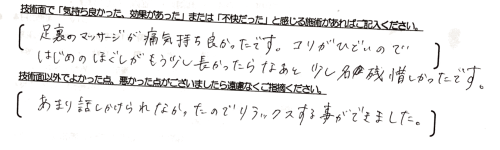 技術面で「気持ち良かった、効果があった」または「不快だった」と感じる施術があればご記入ください。
足裏のマッサージが痛気持ち良かったです。コリがひどいので
はじめのほぐしがもう少し長かったらなあと少し名残惜しかったです。
技術面以外でよかった点、悪かった点がございましたら遠慮なくご指摘ください。
あまり話しかけられなかったのでリラックスする事ができました。